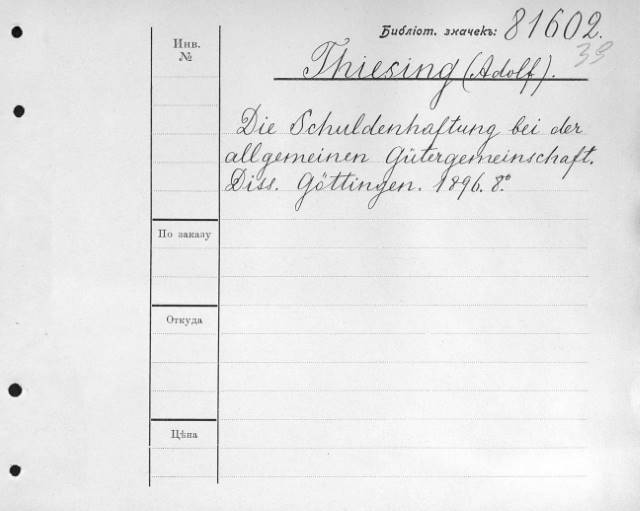 Библіот. значекъ: 81602.
39
Инв.
№
Thiesing (Adolf).
Die Schuldenhaftung bei der
allgemeinen Gütergemeinschaft.
Diss. Göttingen. 1896. 8°
По заказу
Откуда
Цѣна